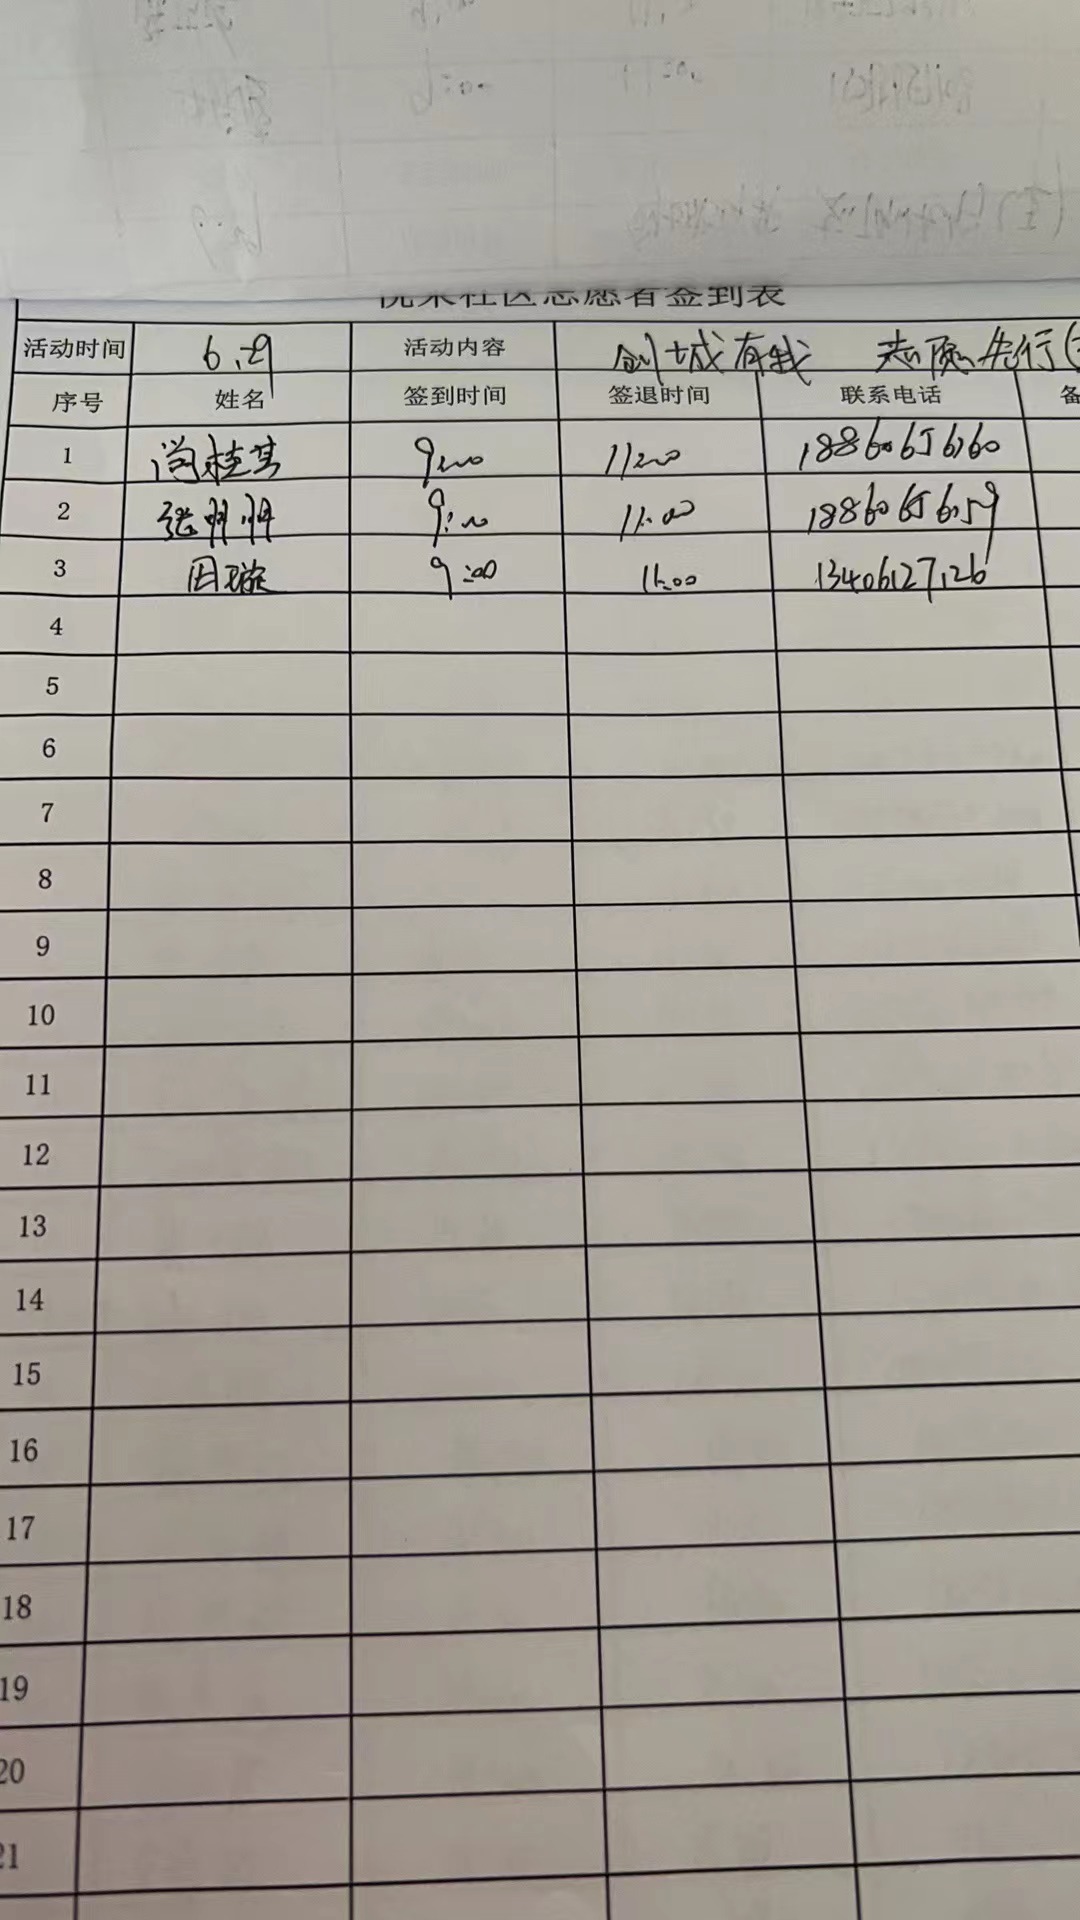 社区志愿者签到表
活动时间 6.29 活动内容 创城有我 志愿先行(
序号 姓名 签到时间 签退时间 联系电话 备
1 尚桂其 9:00 11:00 18860656160
2 张明明 9:00 11:00 18860656159
3 田璇 9:00 11:00 13406127126
4
5
6
7
8
9
10
11
12
13
14
15
16
17
18
19
20
21